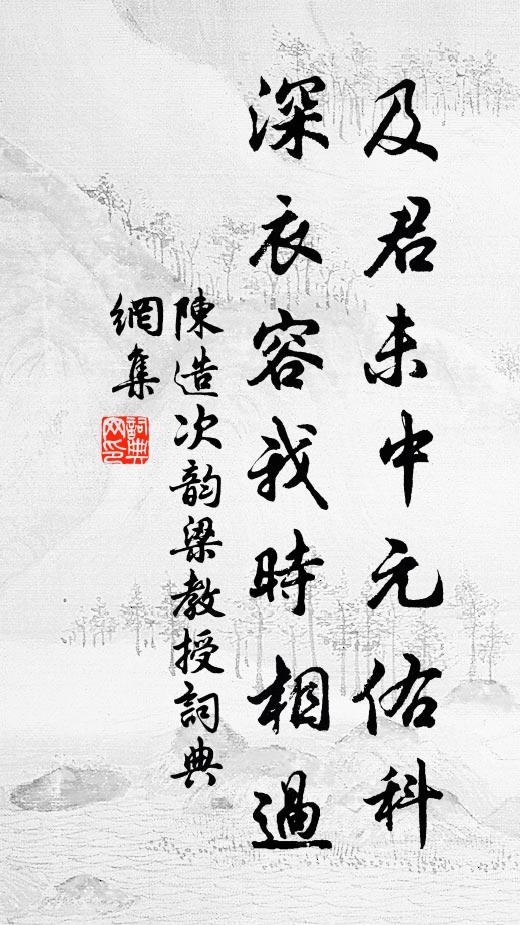 及君未中元佑科
深衣容我時相過
陳造次韵梁教授詞典
網集
詞典
网印